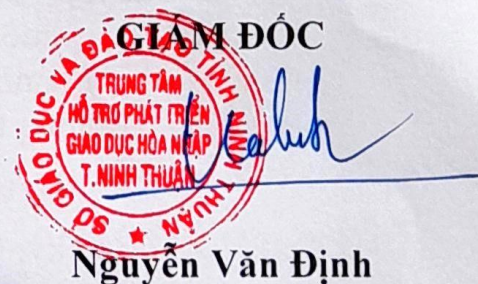 GIÁM ĐỐC
SỞ GIÁO DỤC VÀ ĐÀO TẠO TỈNH NINH THUẬN
TRUNG TÂM
HỖ TRỢ PHÁT TRIỂN
GIÁO DỤC HÒA NHẬP
T.NINH THUẬN
Nguyễn Văn Định